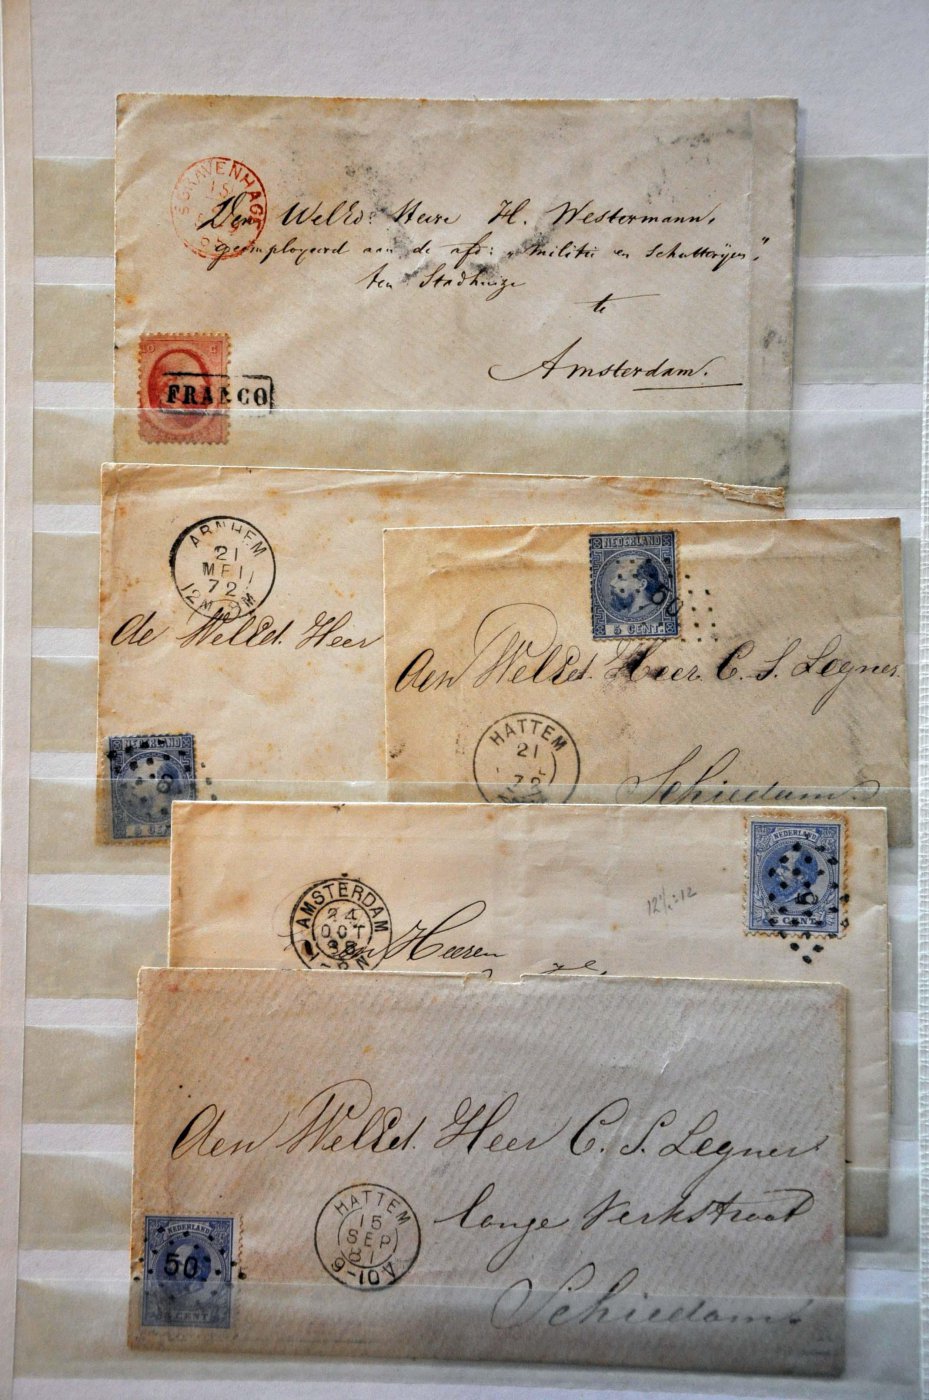 'SGRAVENHAGE
15
67
Den WelEd: Heere H. Westermann,
geëmployeerd aan de afd: „militie en schutterijen,"
ten Stadhuize
te
Amsterdam.
10 C
FRANCO
ARNHEM
21
MEI
72
12M
de WelEd. Heer
NEDERLAND
5 CENT
NEDERLAND
5 CENT.
50
Aen WelEd. Heer C. S. Legner
HATTEM
21
72
Schiedam
NEDERLAND
5 CENT
5
12½:12
AMSTERDAM
24
OCT
88
Heeren
Aen WelEd. Heer C. S. Legner
lange Kerkstraat
Schiedam
HATTEM
15
SEP
81
NEDERLAND
50
5 CENT